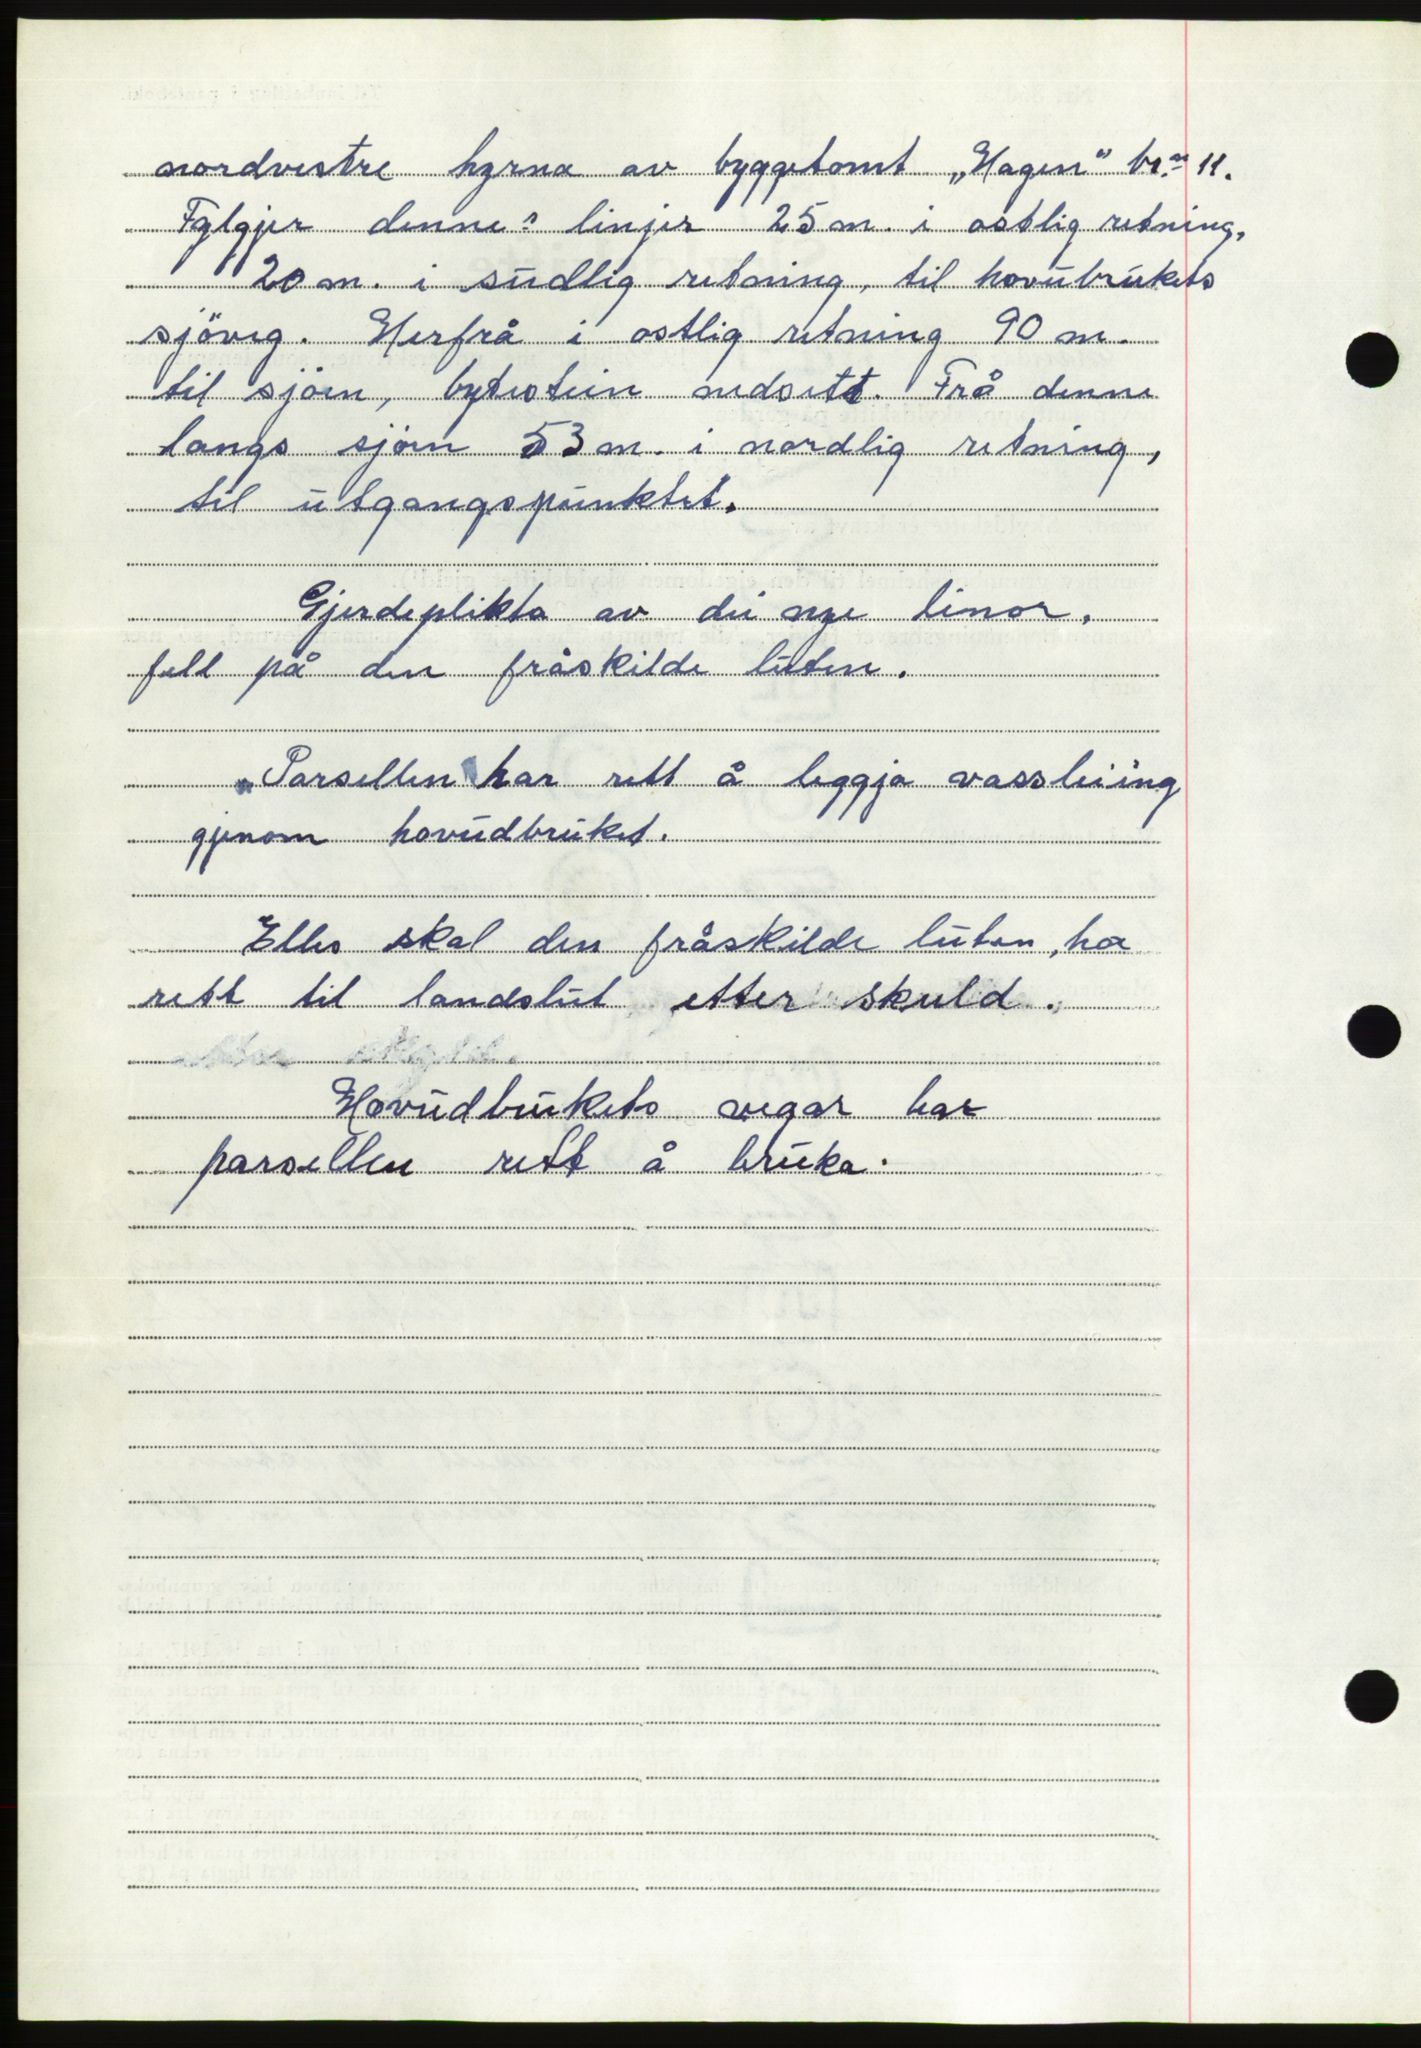 nordvestre hyrna av byggetomt „Hagen" br.n 11.
Fylgjer denne's linjer 25 m. i ostlig retning,
20 m. i sudlig retning, til hovubrukets
sjöveg. Herfrå i ostlig retning 90 m.
til sjoen, bytestein nedsett. Frå denne
langs sjoen 53 m. i nordlig retning,
til utgangspunktet.
Gjerdeplikta av dei nye linor,
fell på den fråskilde luten.
Parsellen har rett å leggja vassleiing
gjenom hovudbruket.
Elles skal den fråskilde luten, ha
rett til landslut etter skuld.
Hovudbrukets vegar har
parsellen rett å bruka.